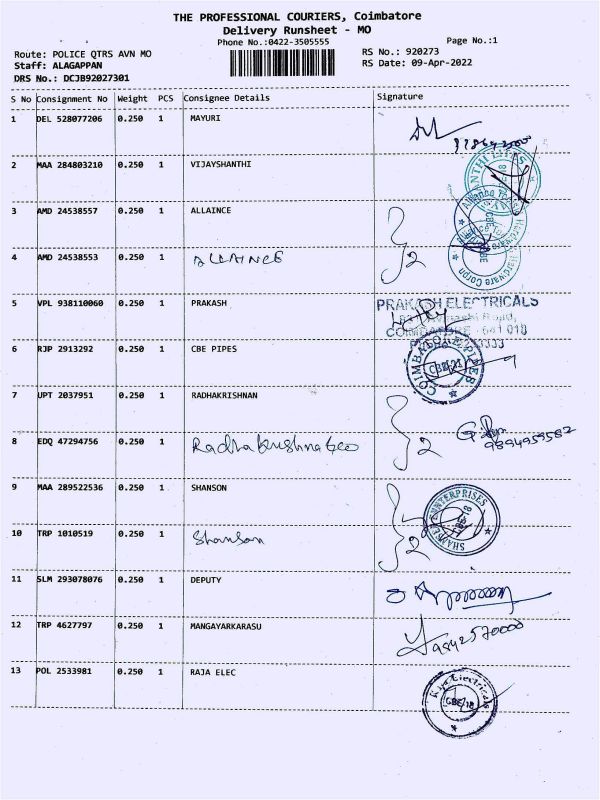 THE PROFESSIONAL COURIERS, Coimbatore
Delivery Runsheet - MO
Phone No.:0422-3505555
Page No.:1
Route: POLICE QTRS AVN MO
RS No.: 920273
Staff: ALAGAPPAN
RS Date: 09-Apr-2022
DRS No.: DCJB92027301
S No Consignment No Weight PCS Consignee Details Signature
1 DEL 528077206 0.250 1 MAYURI
2 MAA 284803210 0.250 1 VIJAYSHANTHI
3 AMD 24538557 0.250 1 ALLAINCE
4 AMD 24538553 0.250 1 ALLAINCE
2
5 VPL 938110060 0.250 1 PRAKASH
PRAKASH ELECTRICALS
COIMBATORE - 641 018
6 RJP 2913292 0.250 1 CBE PIPES
COIMBATORE PIPES
7 UPT 2037951 0.250 1 RADHAKRISHNAN
8 EDQ 47294756 0.250 1 Radhakrishna &co
2
9894959582
9 MAA 289522536 0.250 1 SHANSON
ENTERPRISES
10 TRP 1010519 0.250 1 Shanson
2
11 SLM 293078076 0.250 1 DEPUTY
12 TRP 4627797 0.250 1 MANGAYARKARASU
9842570000
13 POL 2533981 0.250 1 RAJA ELEC
Raja Electricals
CBE-18